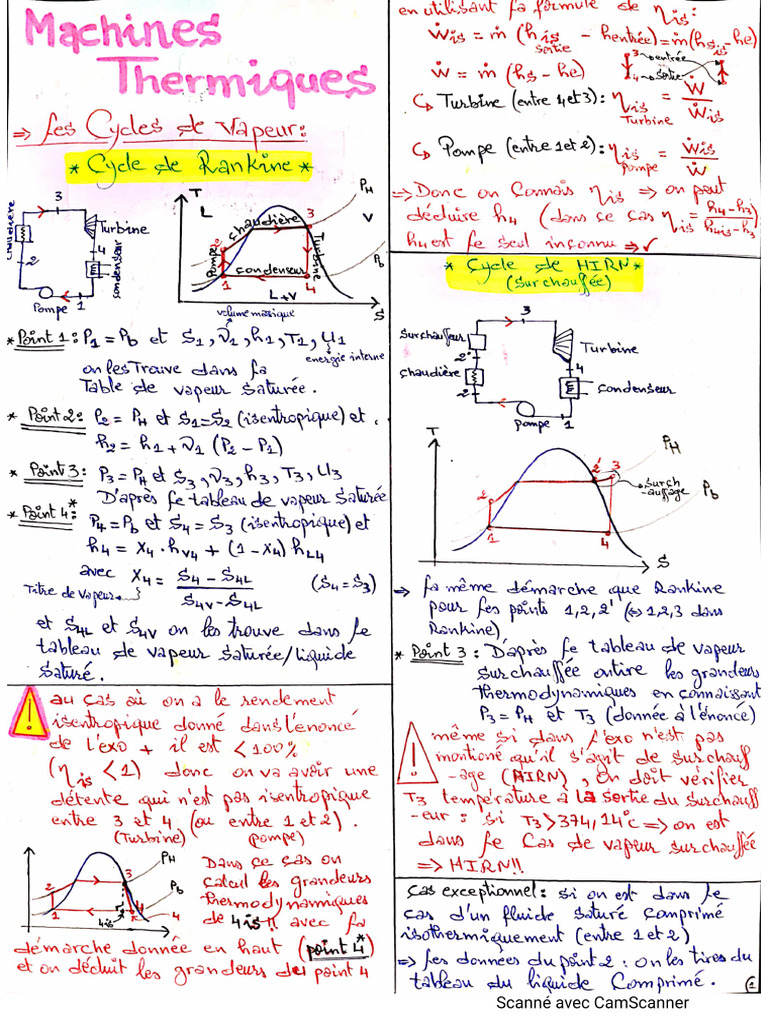 Machines
Thermiques
=> Les Cycles de Vapeur:
* Cycle de Rankine *
3
chaudière
Turbine
4
condenseur
2
Pompe
1
T
L
PH
V
chaudière
3
Pompe
2
Turbine
Pb
condenseur
1
4
L+V
S
volume massique
* Point 1: P1 = Pb et S1, ν1, h1, T1, U1
énergie interne
on les Trouve dans la
Table de vapeur saturée.
* Point 2: P2 = PH et S1=S2 (isentropique) et.
h2 = h1 + ν1 (P2 - P1)
* Point 3: P3 = PH et S3, ν3, h3, T3, U3
D'après le tableau de vapeur Saturée
* Point 4:* P4 = Pb et S4 = S3 (isentropique) et
h4 = x4 . hV4 + (1-x4) hL4
avec x4 = S4 - S4L / S4V - S4L (S4 = S3)
Titre de vapeur
et S4L et S4V on les trouve dans le
tableau de vapeur saturée/liquide
saturé.
! au cas où on a le rendement
isentropique donné dans l'énoncé
de l'exo + il est < 100%
(ηis < 1) donc on va avoir une
détente qui n'est pas isentropique
entre 3 et 4 (ou entre 1 et 2).
(Turbine) (pompe)
PH
3
2
Pb
1
4is
4
Dans ce cas on
calcul les grandeurs
thermodynamiques
de 4is !! avec la
démarche donnée en haut (point 4*)
et on déduit les grandeurs du point 4
en utilisant la formule de ηis:
Ẇis = ṁ (his - hentrée) = ṁ (hsis - he)
sortie
3 entrée
4 sortie
Ẇ = ṁ (hs - he)
Turbine (entre 4 et 3): ηis = Ẇ / Ẇis
Turbine
Pompe (entre 1 et 2): ηis = Ẇis / Ẇ
pompe
=> Donc on connais ηis => on peut
déduire h4 (dans ce cas ηis = h4-h3 / h4is-h3)
h4 est le seul inconnu => ✓
* Cycle de HIRN *
(Surchauffée)
3
Surchauffeur
2'
Turbine
chaudière
4
condenseur
2
pompe
1
T
PH
2' 3
surch
-auffage
Pb
2
1
4
S
=> la même démarche que Rankine
pour les points 1,2,2' (⇔ 1,2,3 dans
Rankine)
* Point 3: D'après le tableau de vapeur
surchauffée on tire les grandeurs
thermodynamiques en connaissant
P3 = PH et T3 (donnée à l'énoncé)
! même si dans l'exo n'est pas
mentioné qu'il s'agit de surchauff
-age (HIRN), on doit vérifier
T3 température à la sortie du surchauff
-eur : si T3 > 374,14°c => on est
dans le Cas de vapeur surchauffée
=> HIRN!!
Cas exceptionnel: si on est dans le
cas d'un fluide saturé comprimé
isothermiquement (entre 1 et 2)
=> Les données du point 2: on les tires du
tableau du liquide Comprimé.
1
Scanné avec CamScanner